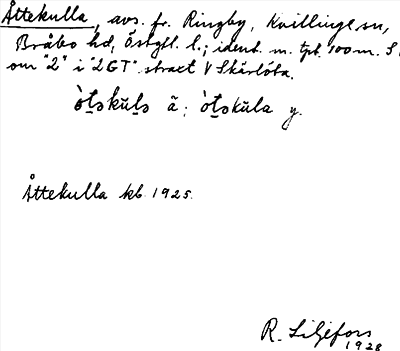 Åttekulla, avs. fr. Ringby, Kvillinge sn,
Bråbo hd, Östgtl. l.; ident. m. tpl. 100 m. S
om "2" i "2GT" strax V Skärlöta.
ò̀tskūls ã; òtskūla y.
Åttekulla kb 1925.
R. Liljefors
1928